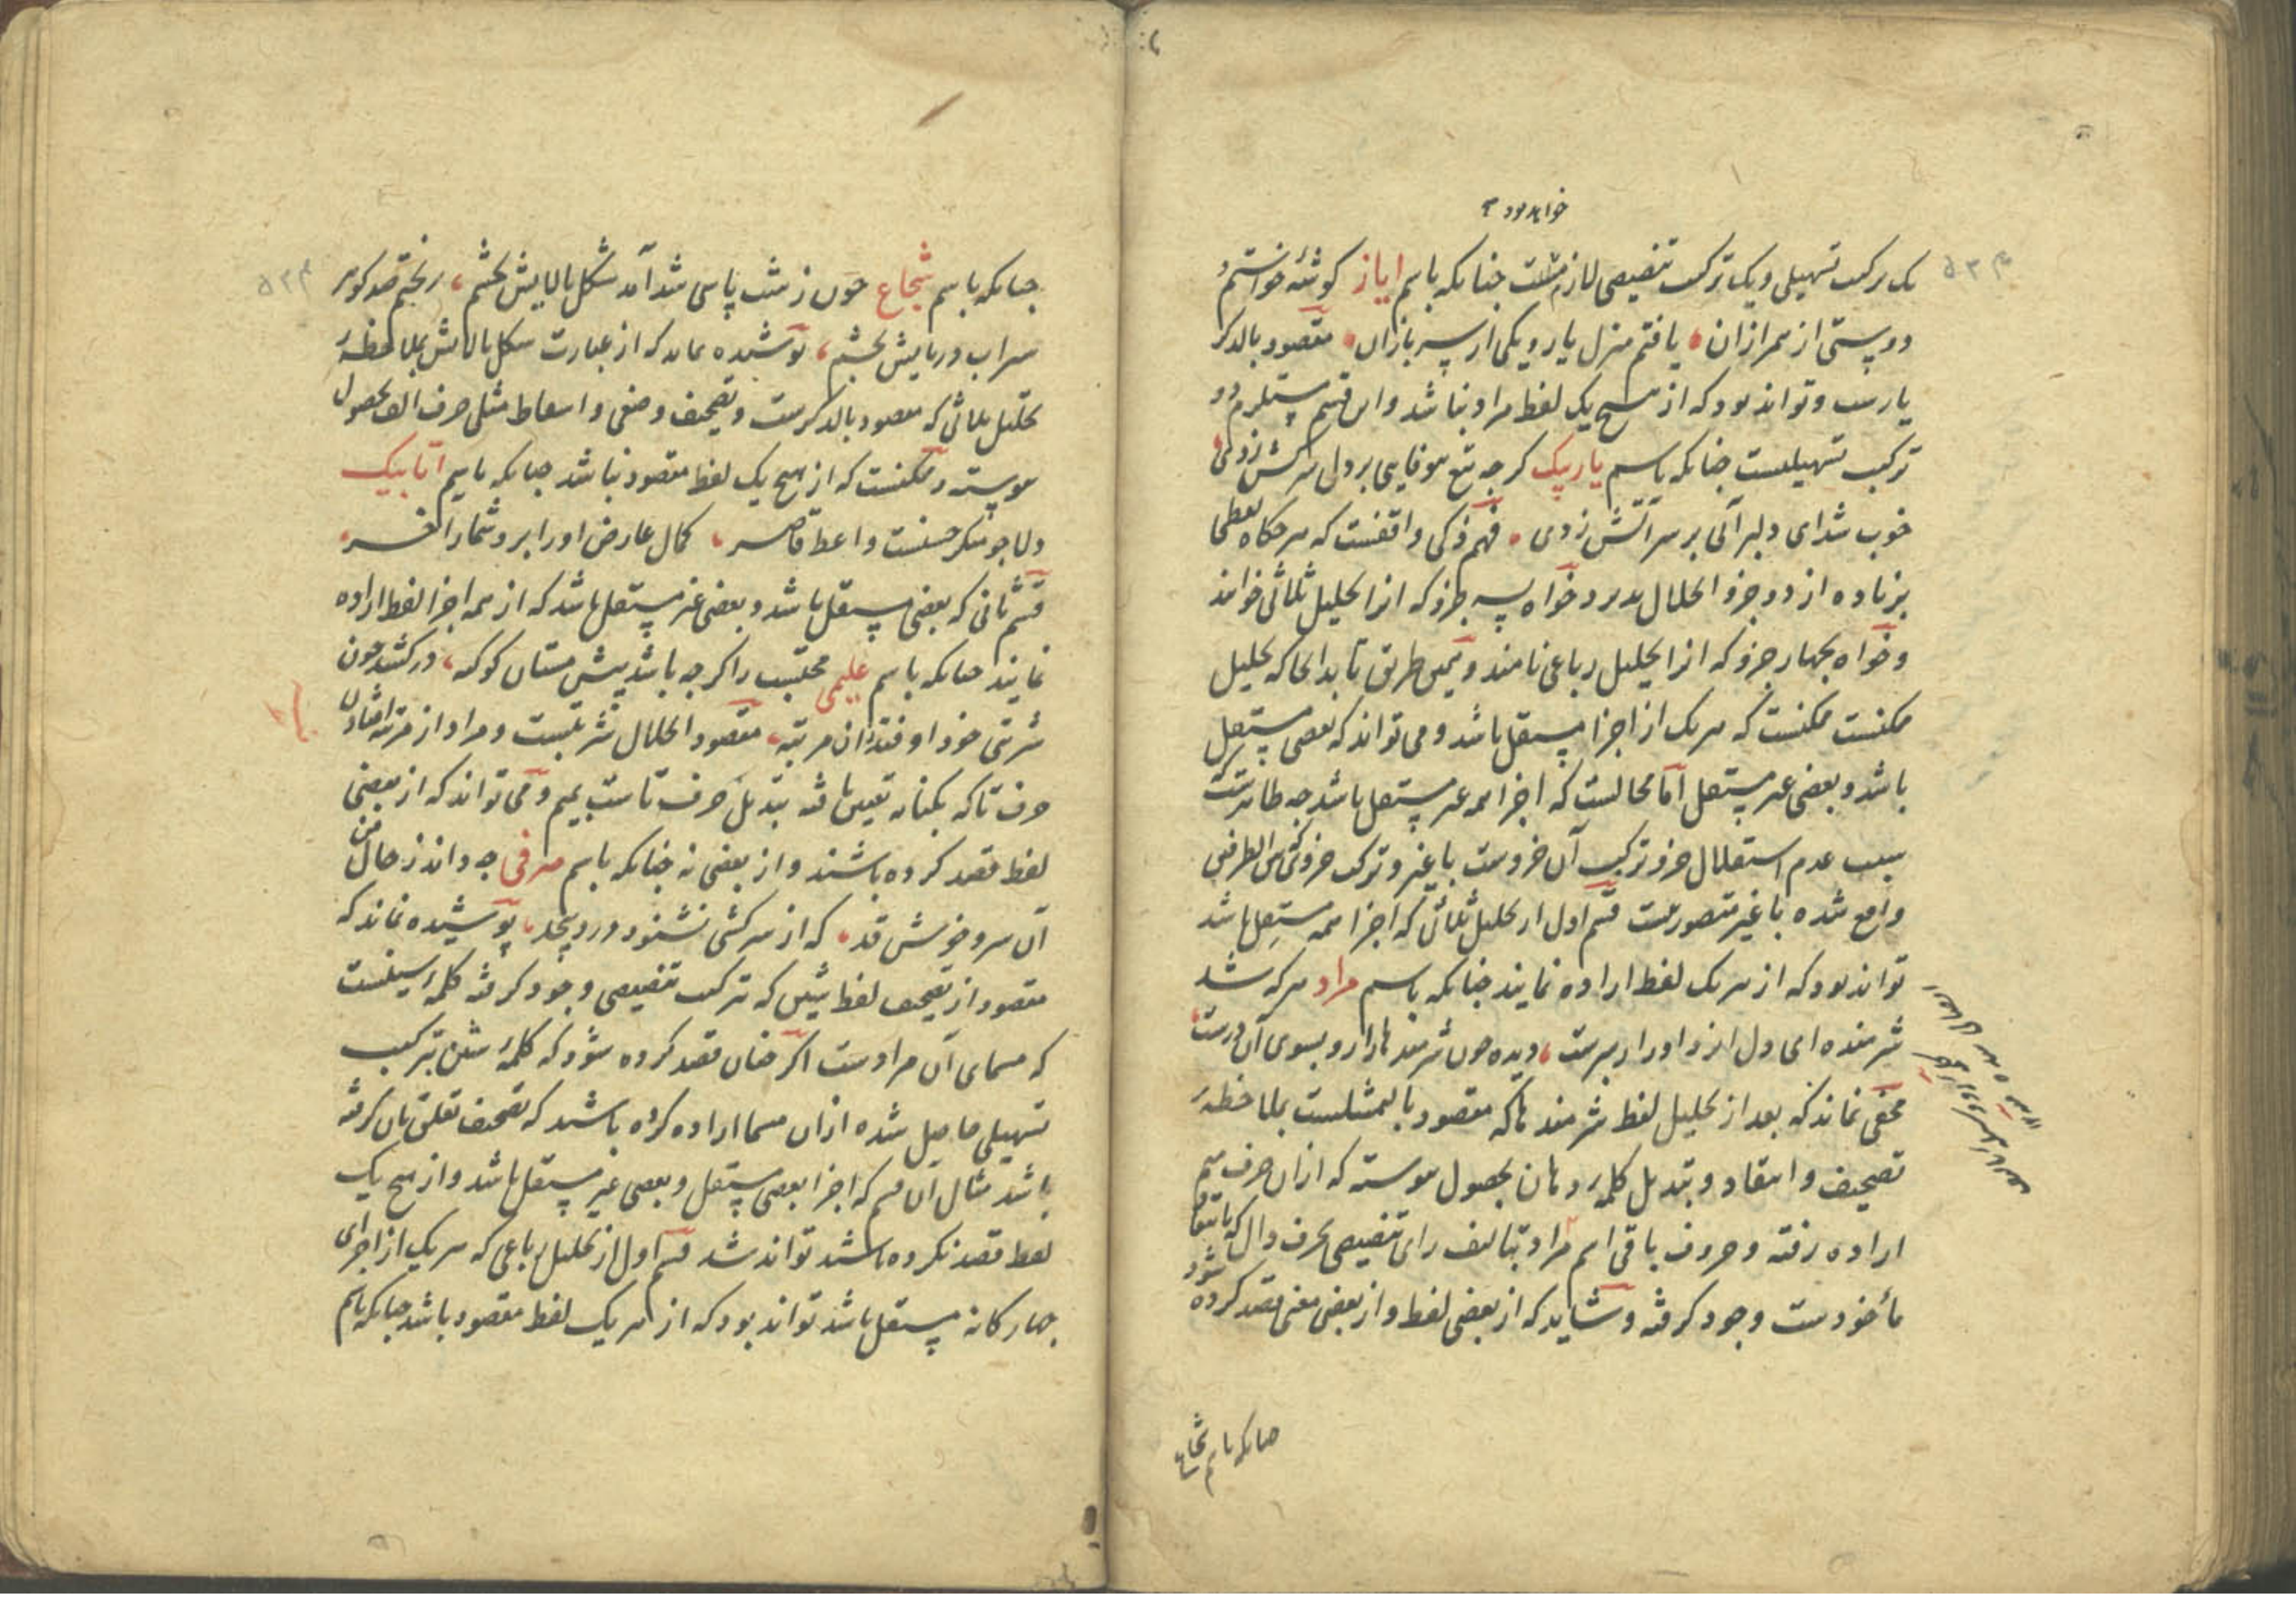 خواهد بود
یک ترکیب تسهیلی و یک ترکیب تنصیصی لازمست چنانکه باسم ایاز کوشهٔ خواستم
دوستی از همرازان یافتم منزل یار و یکی از سربازان مقصود بالذکر
یارست و تواند بود که از هیچ یک لفظ مراد نباشد و این قسم مستلزم دو
ترکیب تسهیلیست چنانکه باسم یاربیک کرچه تیغ بیوفایی بر دل سرکش زدی
خوب شد ای دلبر آبی بر سر آتش زدی فهم ذکی واقفست که هرگاه لفظی
بزیاده از دو جزو انحلال پذیرد خواه بسه جزو که انرا تحلیل ثلاثی خوانند
و خواه بچهار جزو که انرا تحلیل رباعی نامند و همین طریق تا بدانجا که تحلیل
ممکنست ممکنست که هر یک از اجزا مستقل باشد و می تواند که بعضی مستقل
باشد و بعضی غیر مستقل اما محالست که اجزا همه غیر مستقل باشد چه ظاهرست که
سبب عدم استقلال جزو ترکیب آن جزوست با غیر و ترکیب جزو که بین الطرفین
واقع شده با غیر متصور نیست قسم اول از تحلیل ثلاثی که اجزا همه مستقل باشد
تواند بود که از هر یک لفظ اراده نمایند چنانکه باسم مراد هر که شد
شرمنده ای دل از در او را درست دیده چون شرمندها را رو بسوی آن درست
مخفی نماند که بعد از تحلیل لفظ شرمندها که مقصود بالتمثیلست بملاحظهٔ
تصحیف و انتقاد و تبدیل کلمه رو بان بحصول پیوسته که ازان حرف میم
اراده رفته و حروف باقی اسم مراد بتالیف رای تنصیصی بحرف دال که بانتقاد
مأخودست وجود کرفته و شاید که از بعضی لفظ و از بعضی معنی قصد کرده شود
چنانکه باسم شجاع
چنانکه باسم شجاع چون ز شب پاسی شد آمد شکل بالایش بچشم رنجیم صد کوهر
سیراب در پایش بچشم پوشیده نماند که از عبارت شکل بالایش بملاحظهٔ
تحلیل ثلاثی که مقصود بالذکرست و تصحیف وضعی و اسقاط مثلی حرف الف بحصول
پیوسته و ممکنست که از هیچ یک لفظ مقصود نباشد چنانکه باسم اتابیک
دلا چو منکر حسنست واعظ قاصر کمال عارض او را بر و شمار آخر
قسم ثانی که بعضی مستقل باشد و بعضی غیر مستقل باشد که از همه اجزا لفظ اراده
نمایند چنانکه باسم علیمی محتسب را کرچه باشد پیش مستان کوکبه درکشد چون
شربتی خود اوفتد زان مرتبه مقصود انحلال شربتست و مراد از مرتبه افتادن
حرف تا که بکنایه تعیین یافته تبدیل حرف تاست بمیم و می تواند که از بعضی
لفظ قصد کرده باشند و از بعضی نه چنانکه باسم صرفی چه داند ز حال من
آن سرو خوش قد که از سرکشی نشنود درد بیحد پوشیده نماند که
مقصود از تصحیف لفظ شین که بترکیب تنصیصی وجود کرفته کلمه اسینست
که مسمای آن مرادست اکر چنان قصد کرده شود که کلمهٔ شین بترکیب
تسهیلی حاصل شده ازان مسما اراده کرده باشند که تصحیف تعلق بان کرفته
باشد مثال آن قسم که اجزا بعضی مستقل و بعضی غیر مستقل باشد و از هیچ یک
لفظ قصد نکرده باشند تواند شد قسم اول از تحلیل رباعی که هر یک از اجزای
چهارکانه مستقل باشد تواند بود که از هر یک لفظ مقصود باشد چنانکه باسم